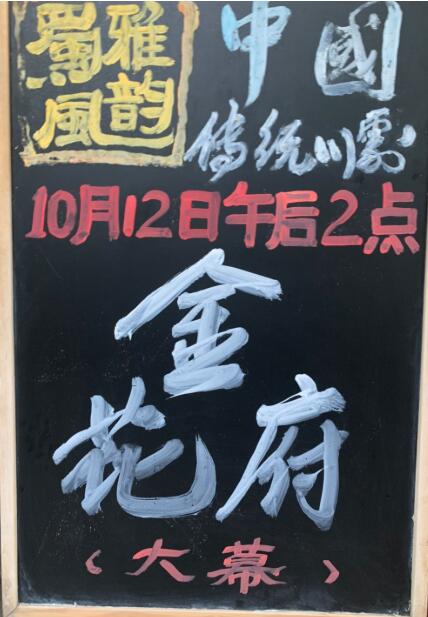 蜀風
雅韵
中國
傳统川劇
10月12日午后2点
金
花府
（大幕）